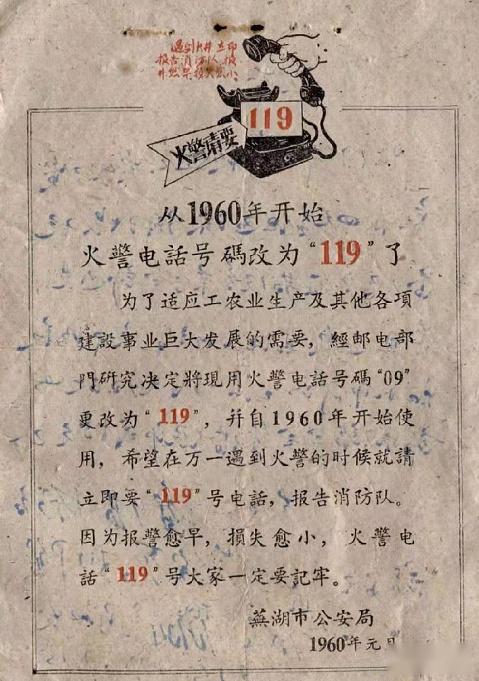 遇到火井立即
报告消防队,损
119
火警请要
从1960年开始
火警电话号碼改为“119”了
为了适应工农业生产及其他各項
建設事业巨大发展的需要，經邮电部
門研究决定將現用火警电話号碼“09”
更改为“119”，并自1960年开始使
用，希望在万一遇到火警的时候就請
立即要“119”号电話，报告消防队。
因为报警愈早，損失愈小，火警电
話“119”号大家一定要記牢。
蕪湖市公安局
1960年元